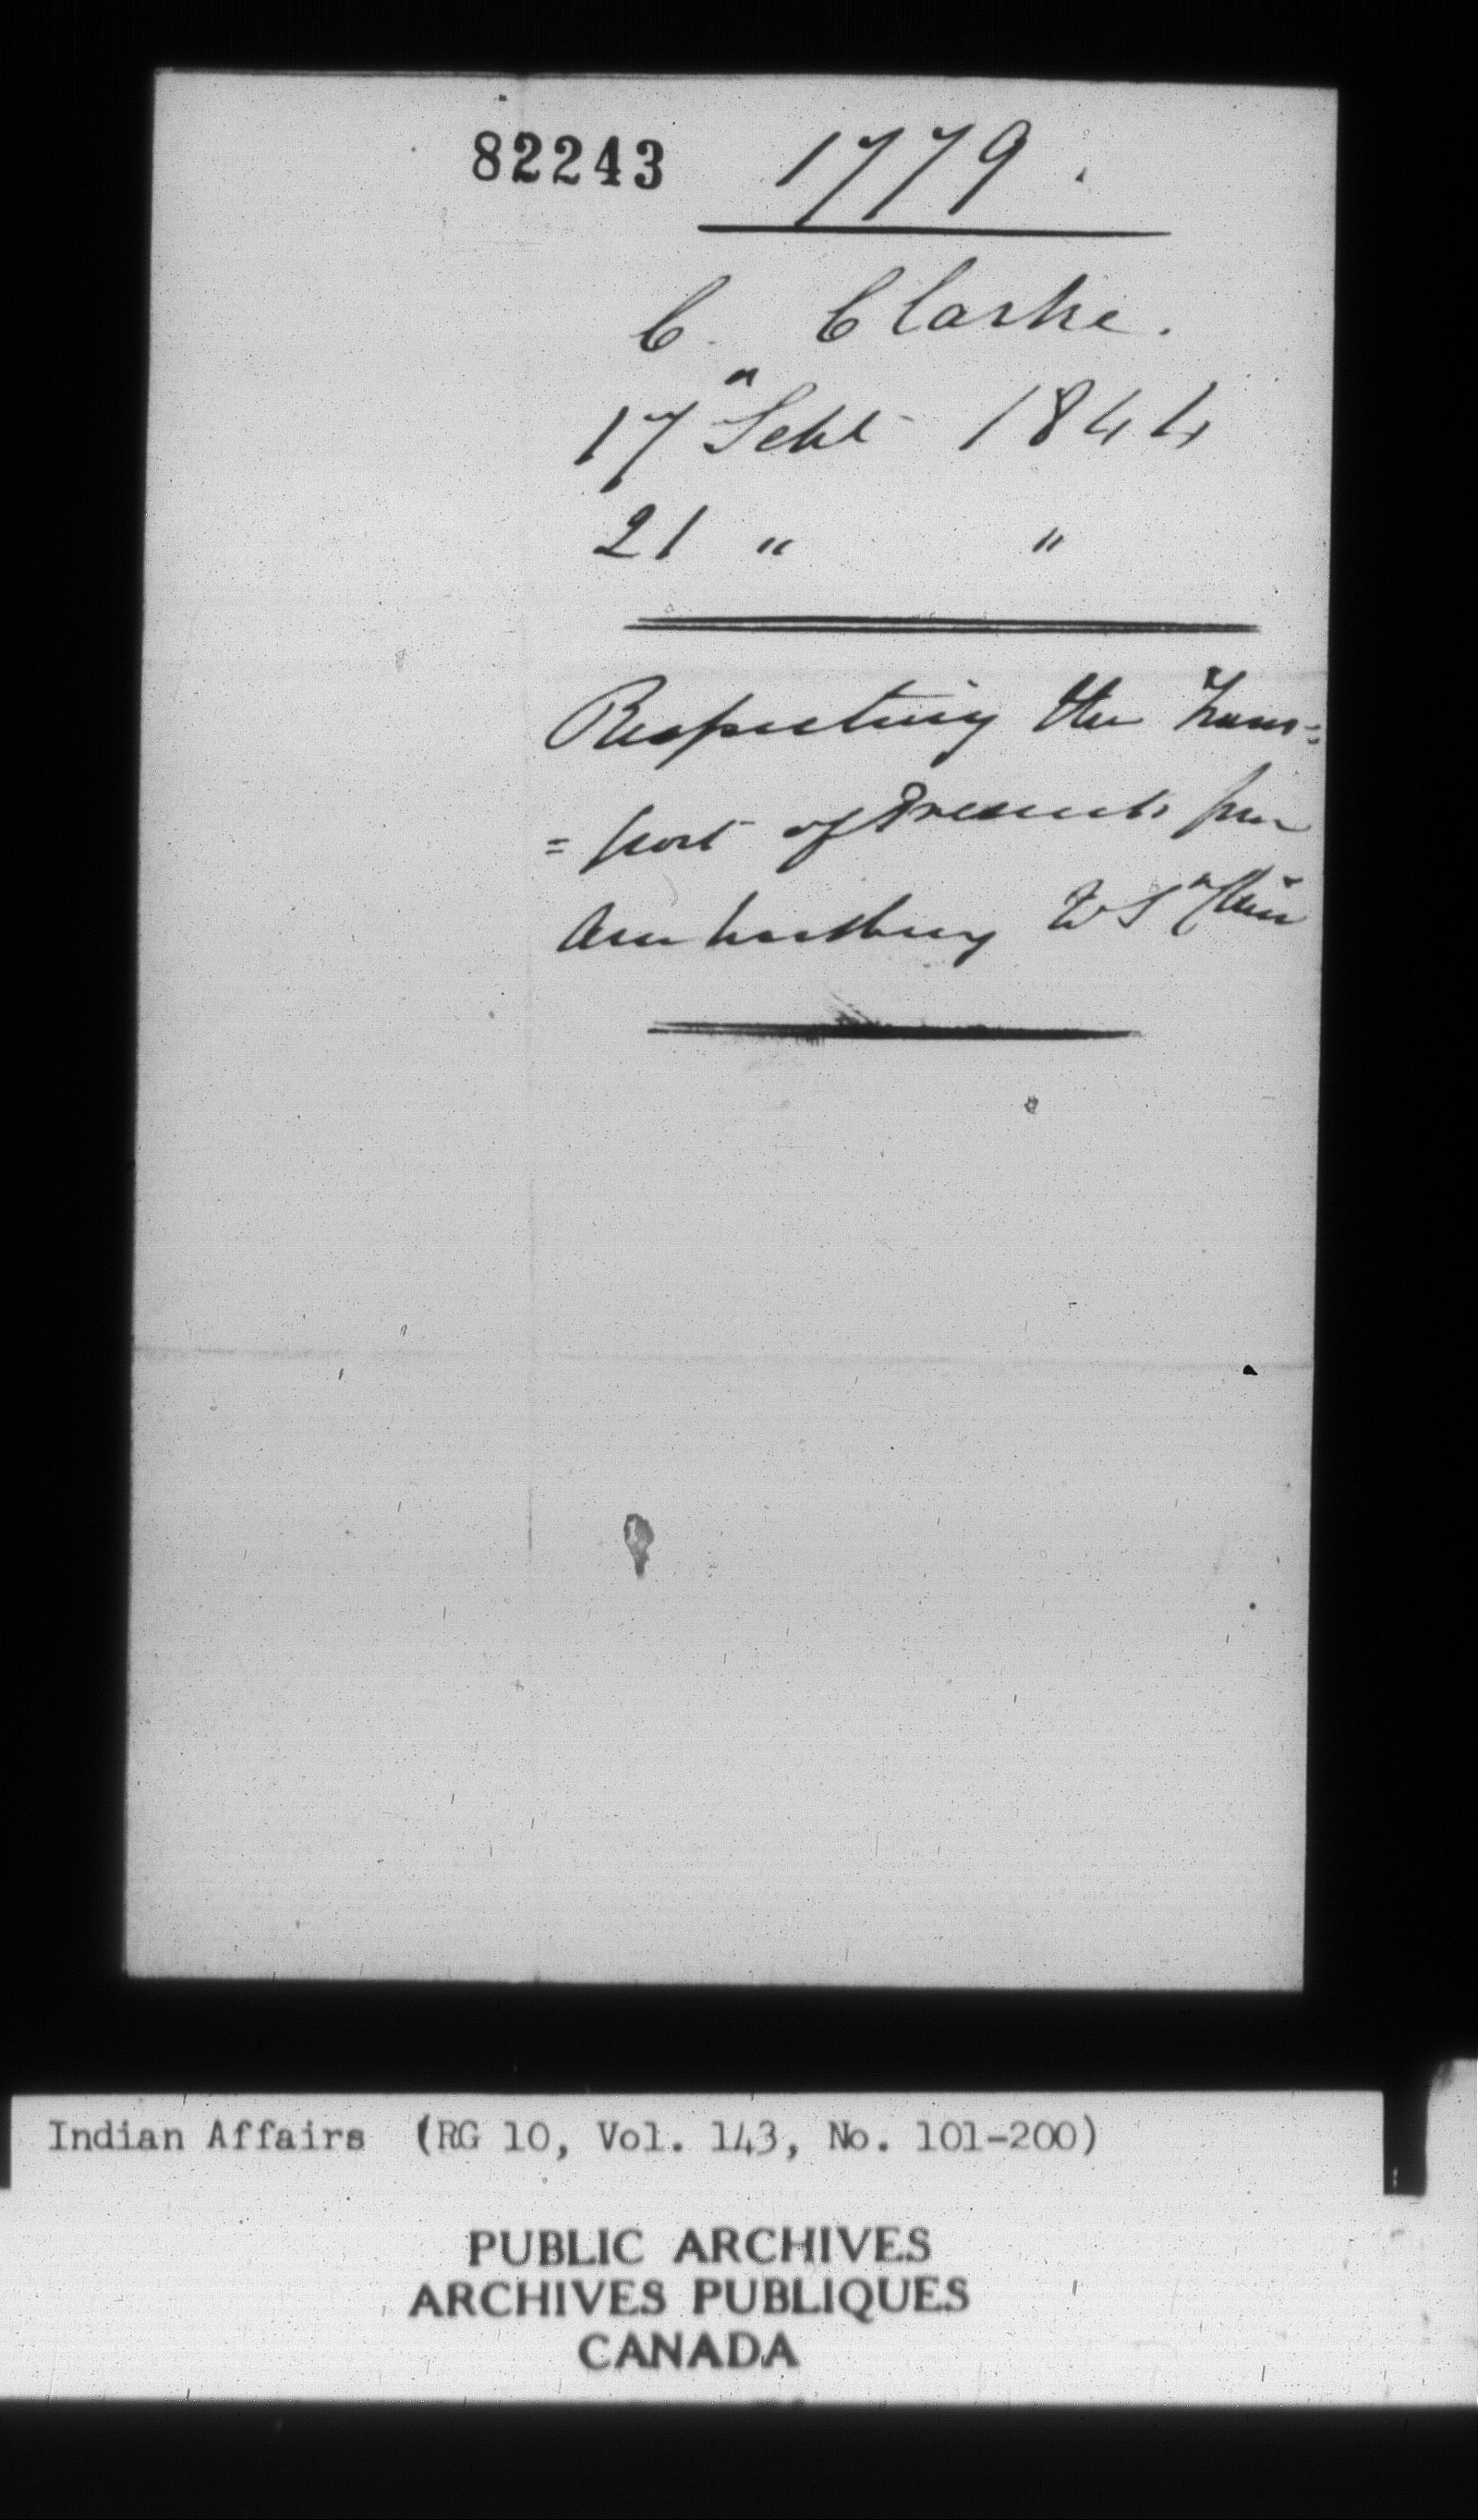 82243 1779.
C. Clarke.
17" Sept 1844
21 " "
Respecting the Trans=
=port of Presents from
Amherstburg to St Clair
Indian Affairs (RG 10, Vol. 143, No. 101-200)
PUBLIC ARCHIVES
ARCHIVES PUBLIQUES
CANADA